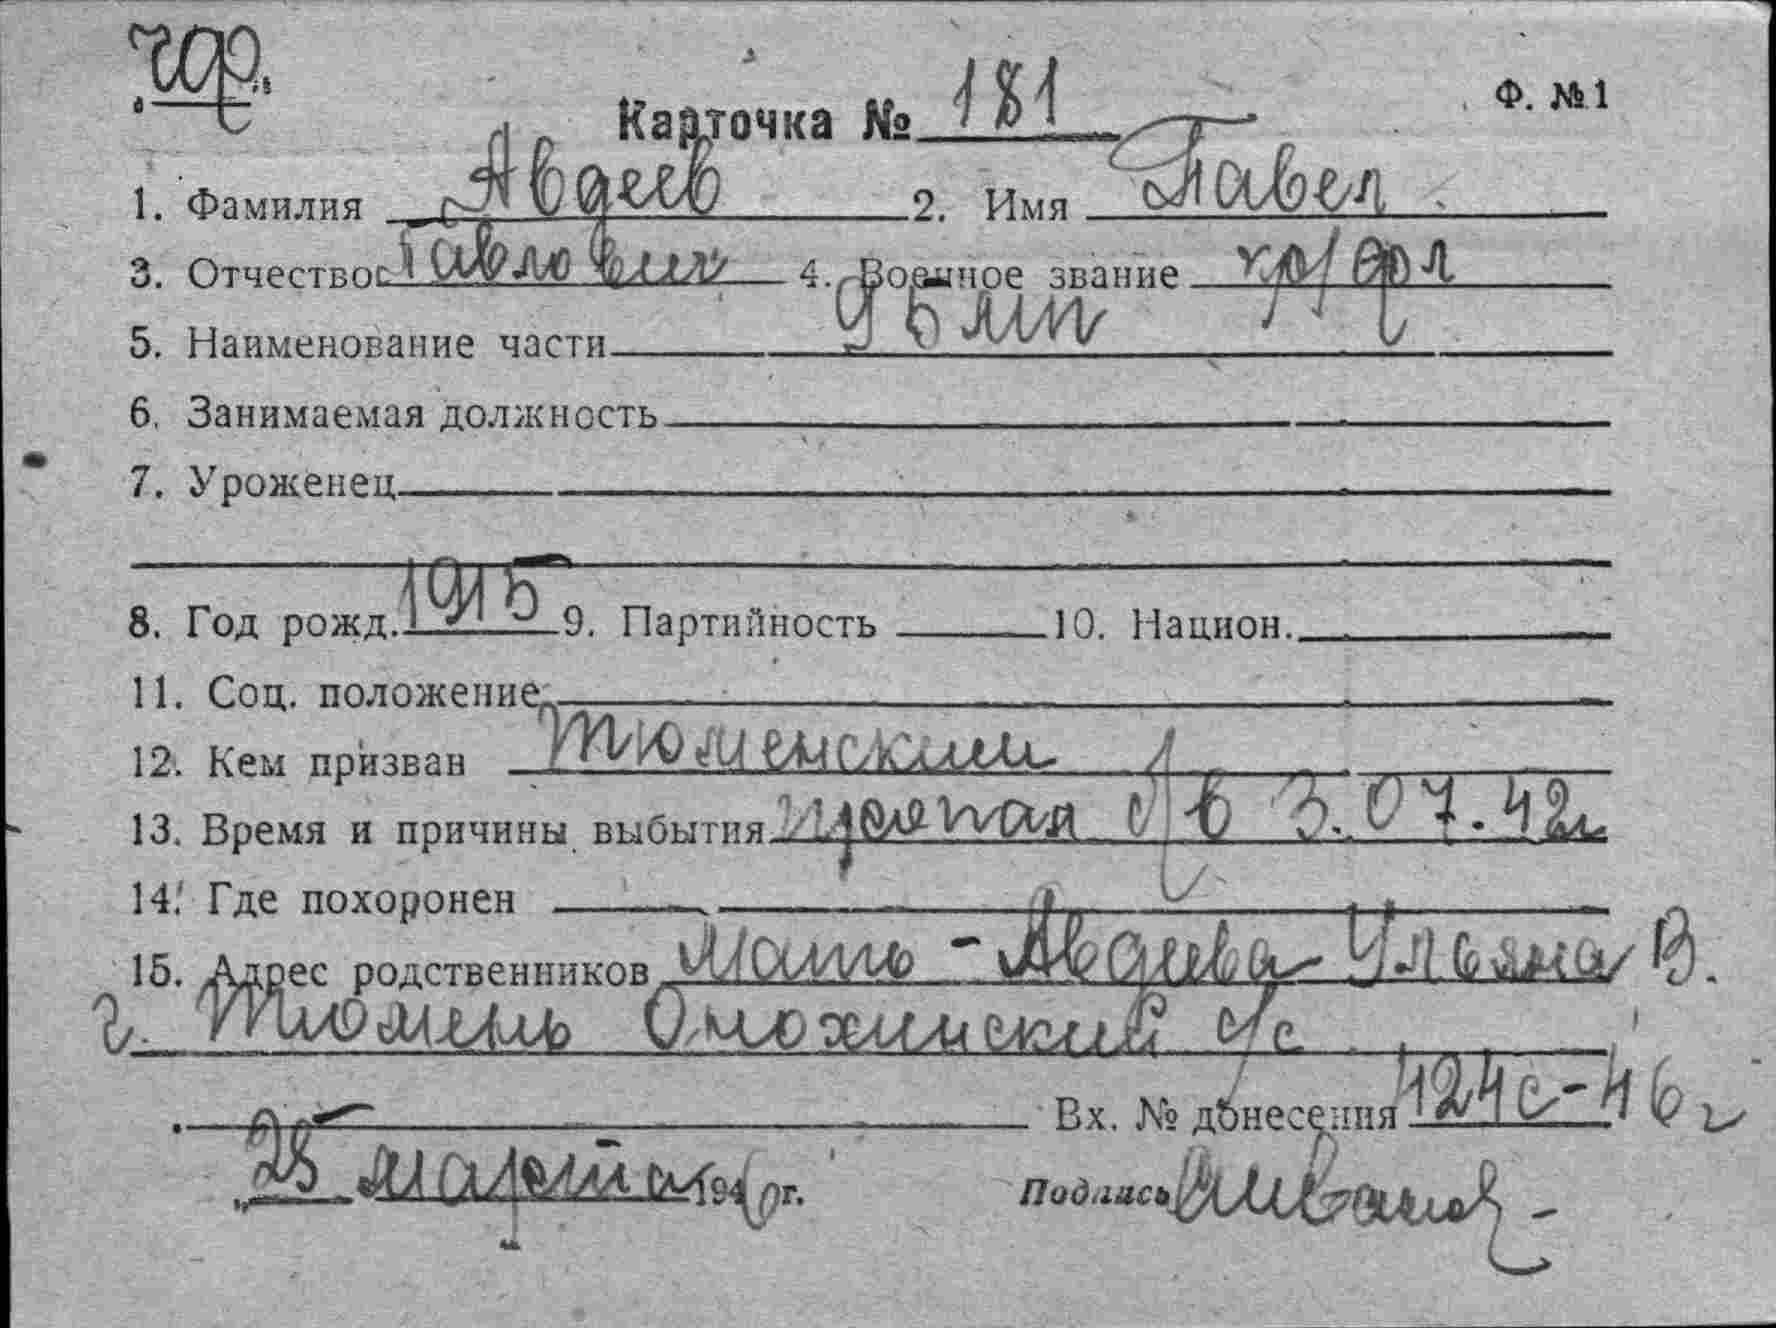 гор.
Карточка № 181 Ф. №1
1. Фамилия Авдеев 2. Имя Павел
3. Отчество Павлович 4. Военное звание
5. Наименование части
6. Занимаемая должность
7. Уроженец
8. Год рожд. 1915 9. Партийность 10. Национ.
11. Соц. положение
12. Кем призван Тюменский
13. Время и причины выбытия пропал б/в 3.07.42г
14. Где похоронен
15. Адрес родственников Мать - Авдеева Ульяна В.
г. Тюмень Онохинский с/с
Вх. № донесения 124с-46г
25 марта 1946 г. Подпись